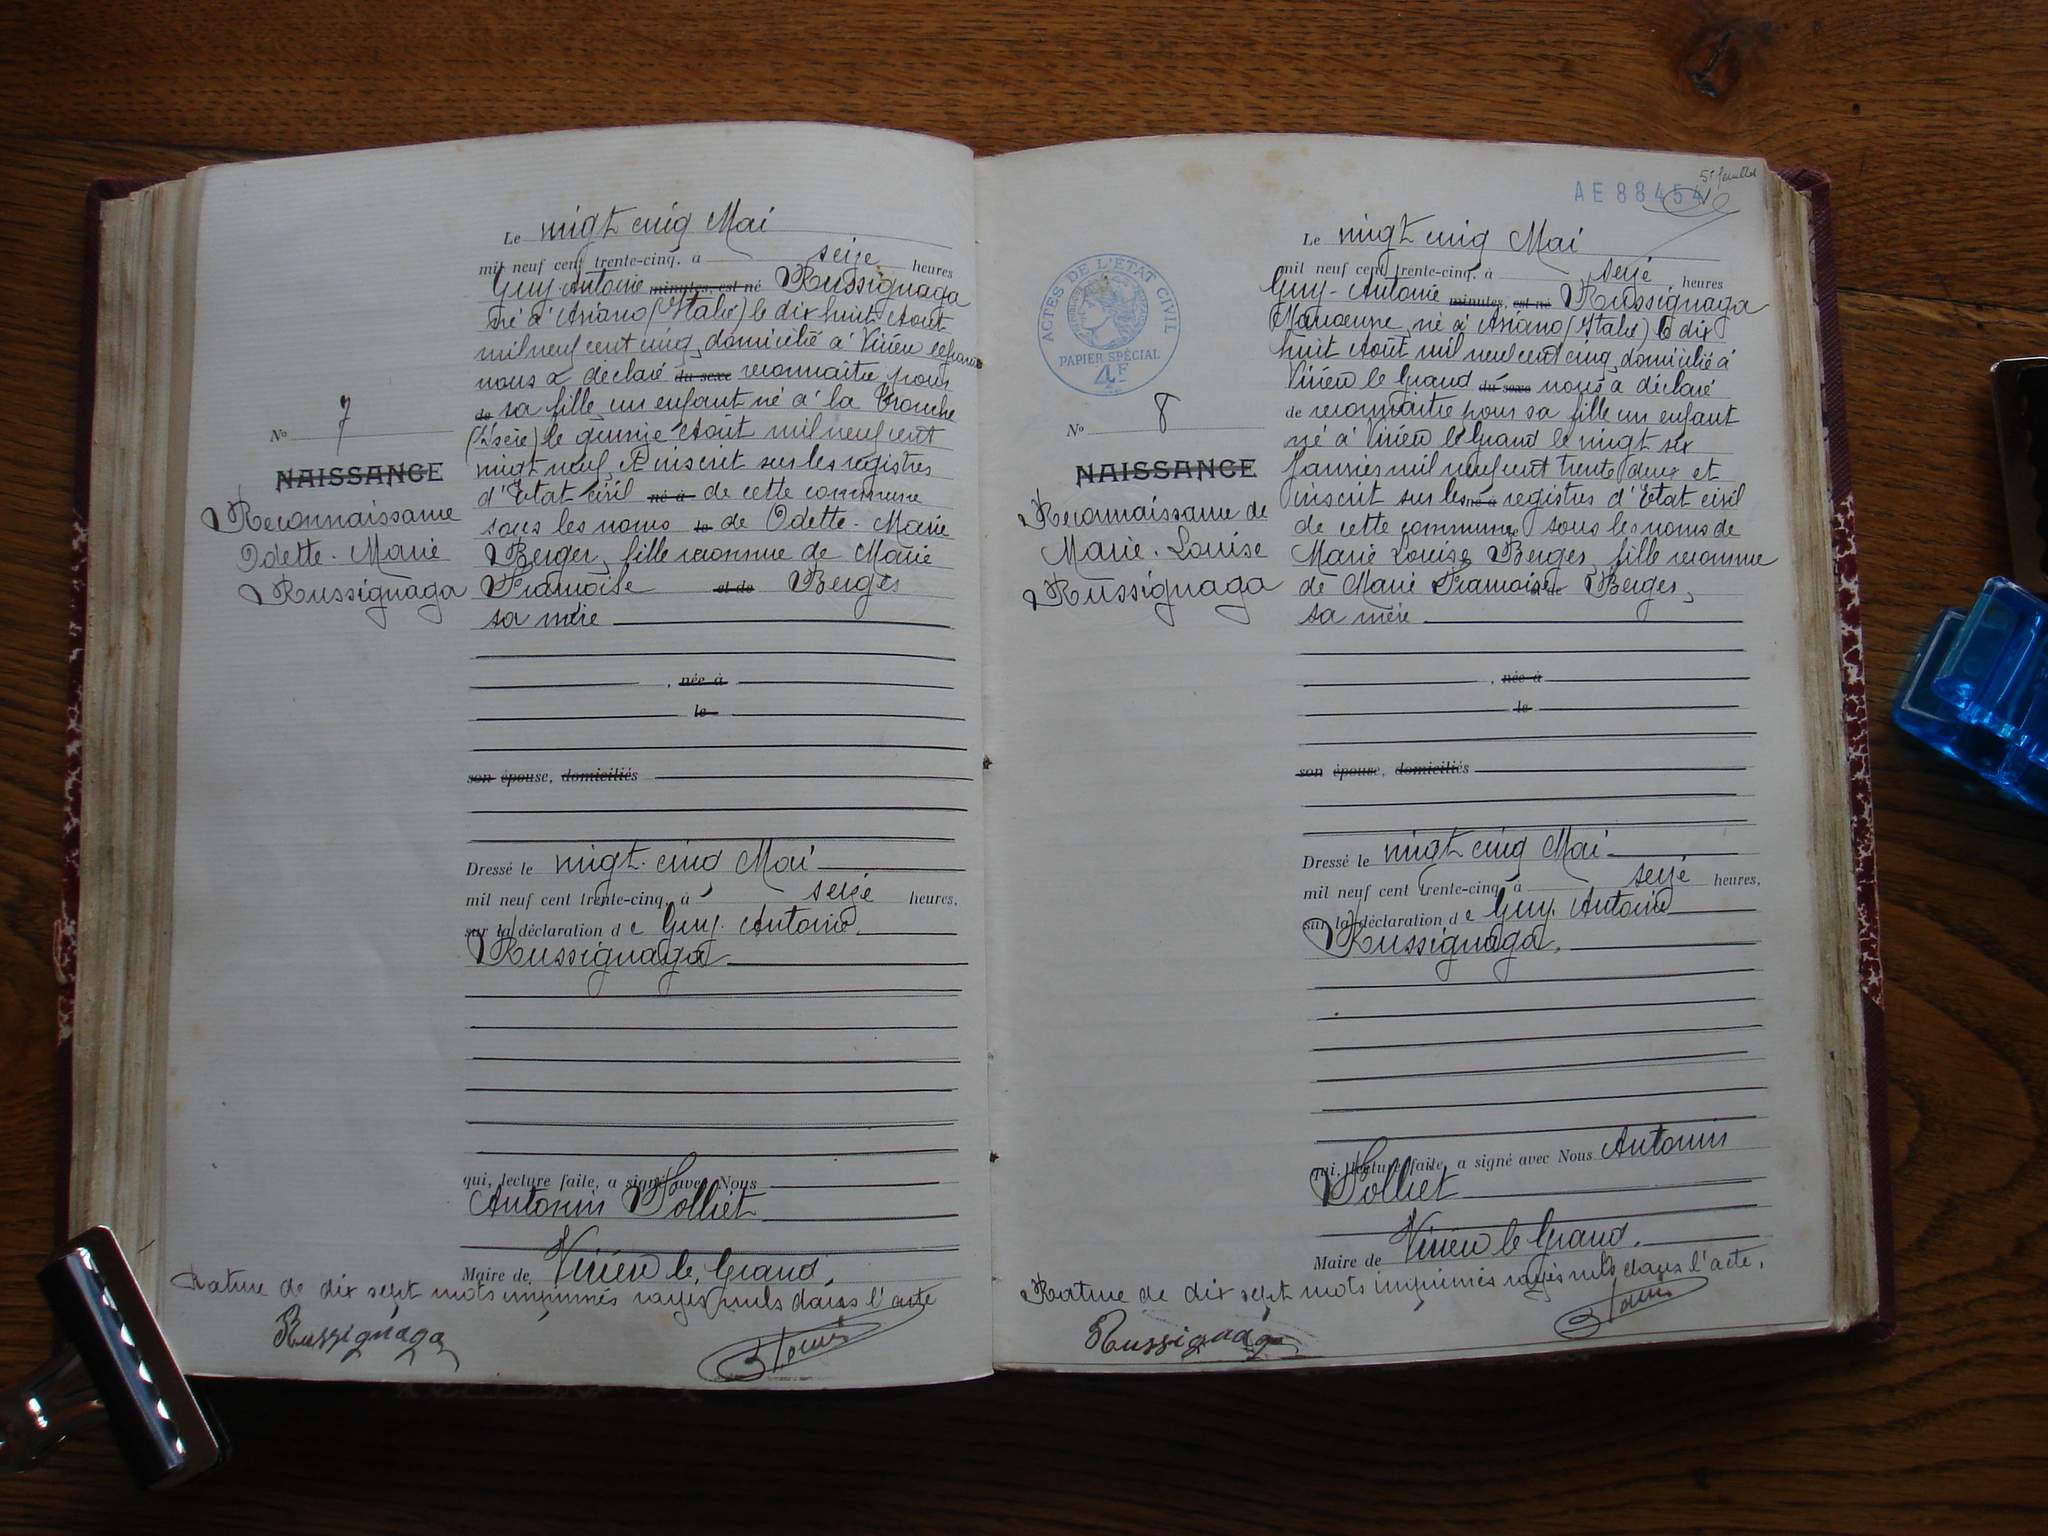 Le vingt cinq Mai
mil neuf cent trente-cinq, à seize heures
Guy-Antoine minutes, est né Russignaga
né à Asiano (Italie) le dix huit Août
mil neuf cent cinq, domicilié à Virieu le grand
nous a déclaré du sexe reconnaître pour
de sa fille, un enfant né à la Tronche
(Isère) le quinze Août mil neuf cent
vingt neuf, et inscrit sur les registres
d'Etat civil né à de cette commune
sous les noms le de Odette-Marie
Berger, fille reconnue de Marie
Françoise et de Berger
sa mère
, née à
le
son épouse, domiciliés
Dressé le vingt-cinq Mai
mil neuf cent trente-cinq, à seize heures,
sur la déclaration de Guy-Antoine
Russignaga
qui, lecture faite, a signé avec Nous
Antonin Tolliet
Maire de Virieu le Grand.
Rature de dix sept mots imprimés rayés nuls dans l'acte
Russignaga
No 7
NAISSANCE
Reconnaissance
Odette-Marie
Russignaga
5e feuillet
AE 88454
ACTES DE L'ÉTAT CIVIL
PAPIER SPÉCIAL
4F
No 8
NAISSANCE
Reconnaissance de
Marie-Louise
Russignaga
Le vingt cinq Mai
mil neuf cent trente-cinq, à seize heures
Guy-Antoine minutes, est né Russignaga
Manoeuvre, né à Asiano (Italie) le dix
huit Août mil neuf cent cinq, domicilié à
Virieu le Grand du sexe nous a déclaré
de reconnaître pour sa fille un enfant
né à Virieu le Grand le vingt six
Janvier mil neuf cent trente deux et
inscrit sur les né à registres d'Etat civil
de cette commune sous les noms de
Marie Louise Berger, fille reconnue
de Marie Françoise et de Berger,
sa mère
, née à
le
son épouse, domiciliés
Dressé le vingt cinq Mai
mil neuf cent trente-cinq, à seize heures,
sur la déclaration de Guy-Antoine
Russignaga,
qui, lecture faite, a signé avec Nous Antonin
Tolliet
Maire de Virieu le Grand.
Rature de dix sept mots imprimés rayés nuls dans l'acte.
Russignaga